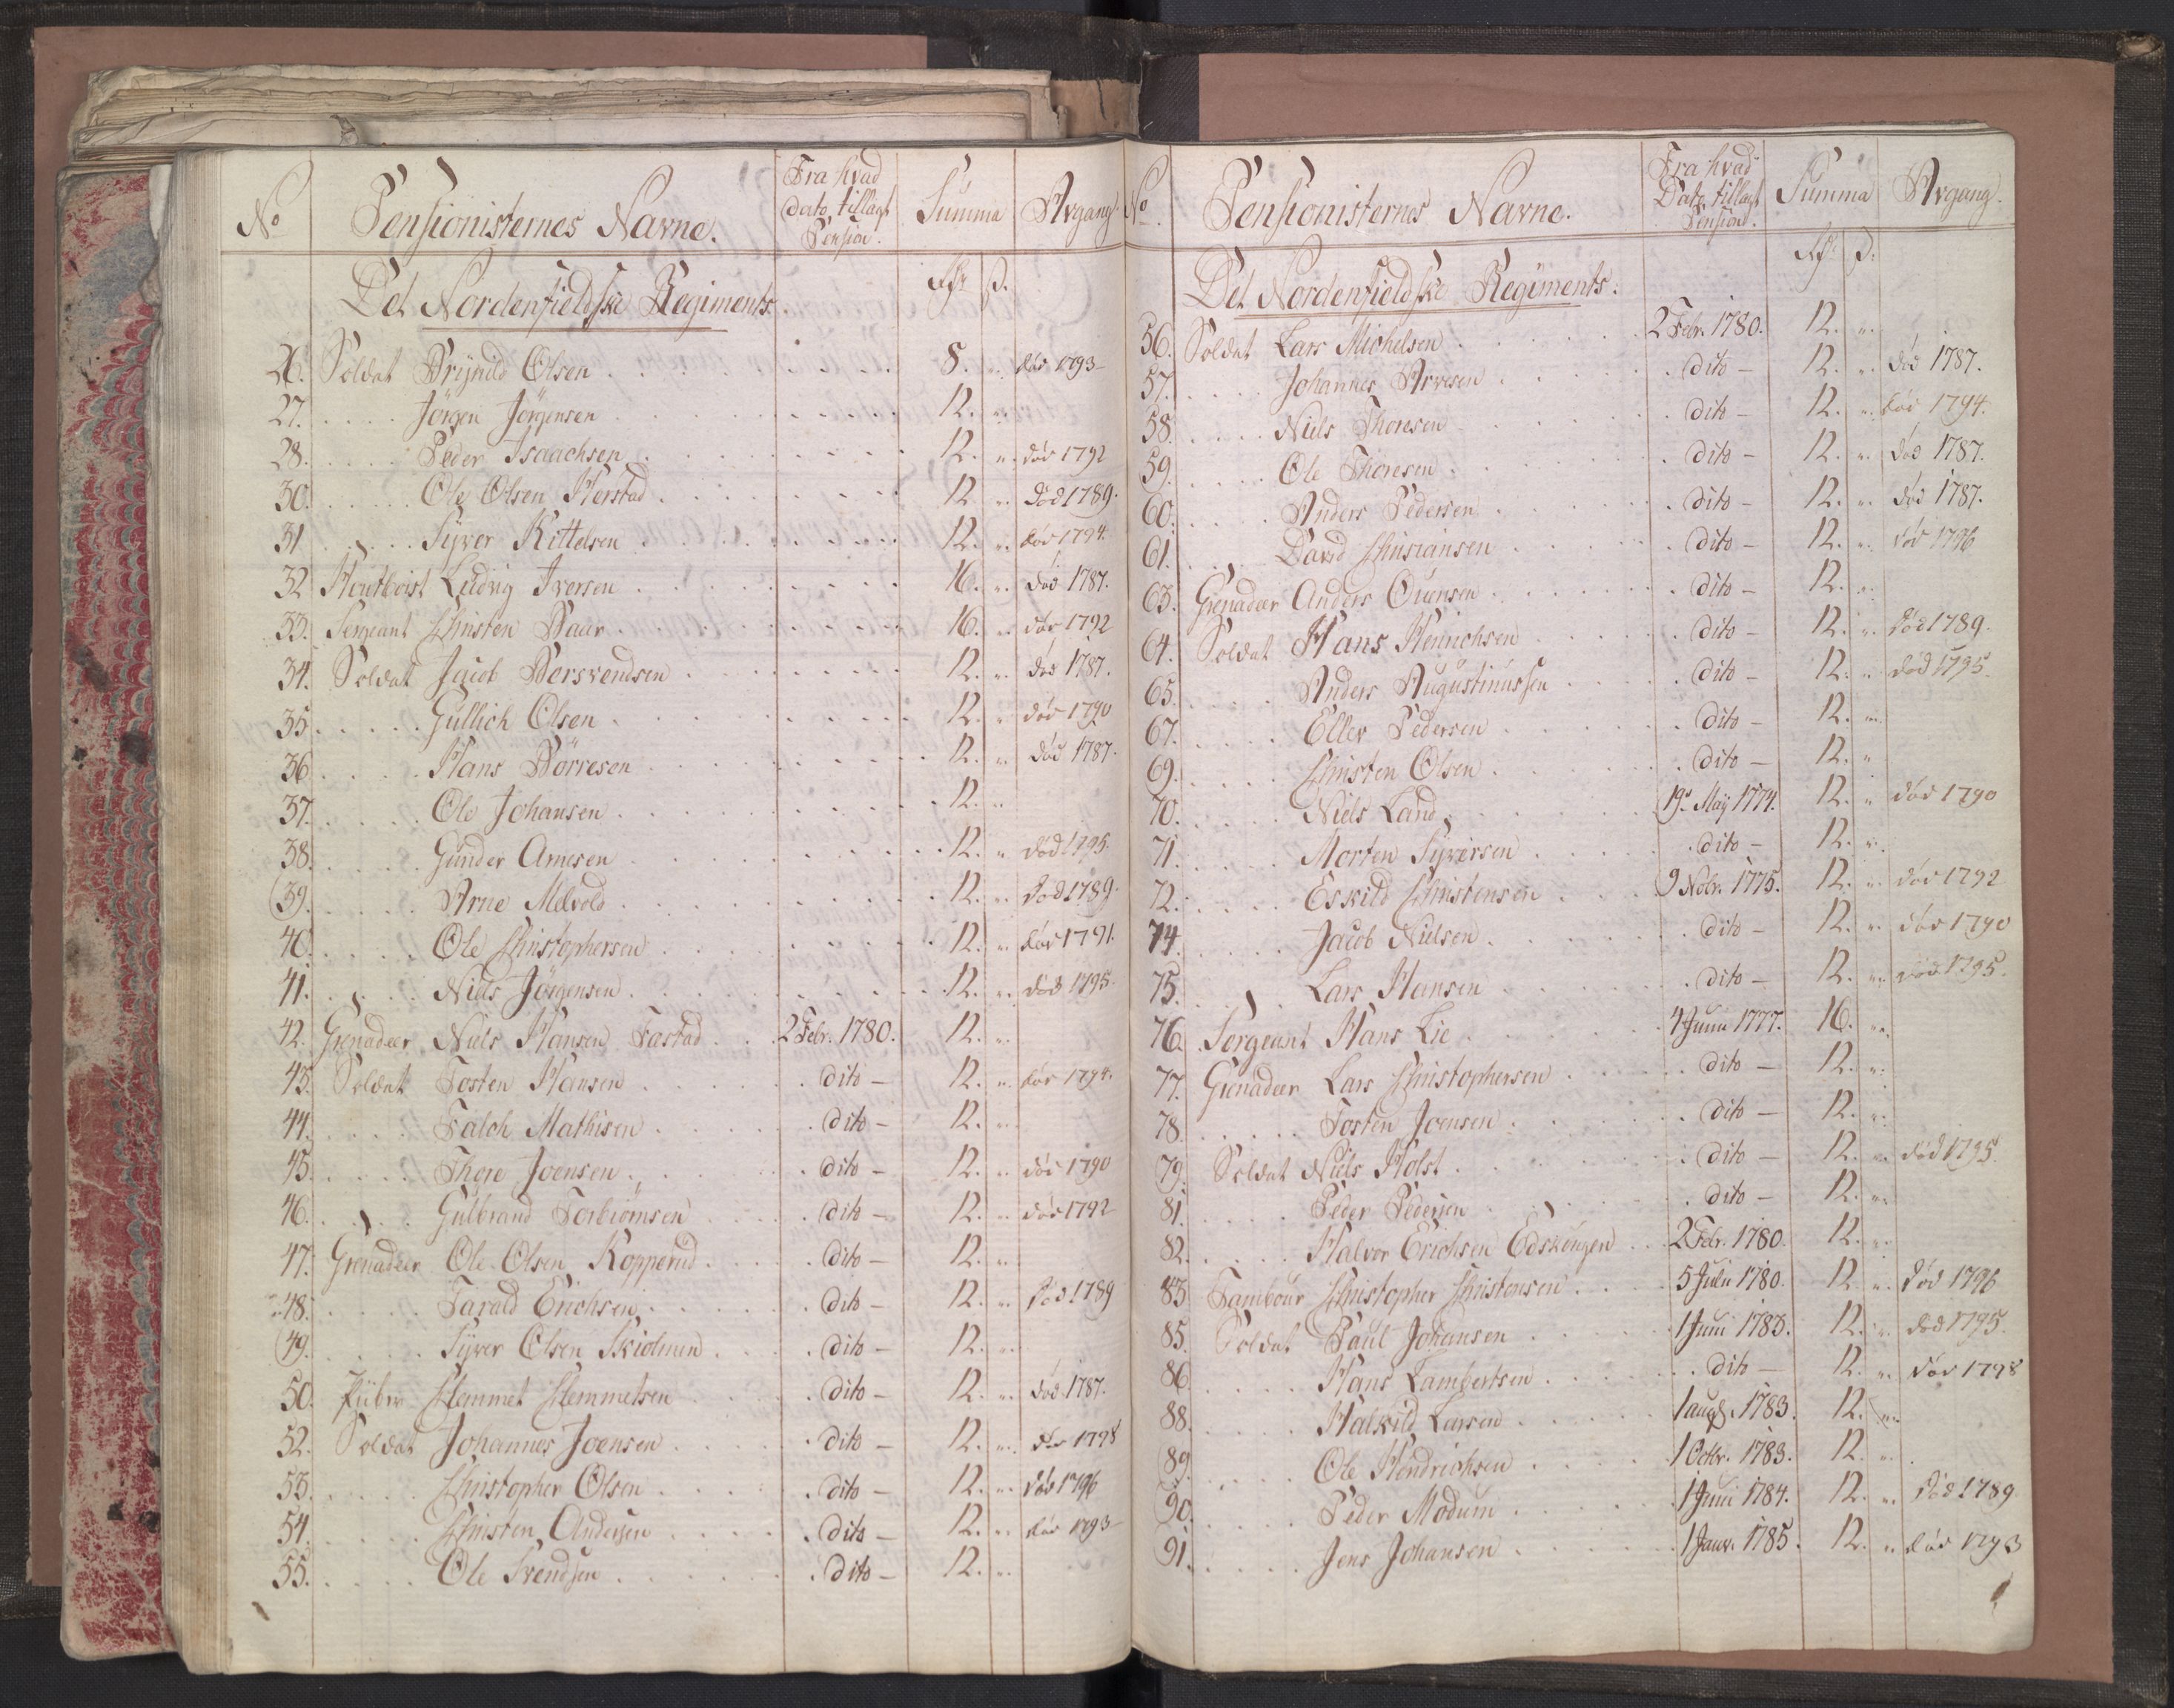 No Pensionisternes Navne. Fra hvad Dato tillagt Pension. Summa Afgang.
Det Nordenfieldske Regiments. Rdr ß.
26. Soldat Brÿnild Olsen 8. " død 1793
27. Jörgen Jörgensen 12. "
28. Peder Isaachsen 12. " død 1792
30. Ole Olsen Herstad 12 " død 1789.
31 Syver Kittelsen 12. " død 1794.
32 Houtboist Ludvig Iversen 16. " død 1787.
33. Sergeant Christen Baar 16. " død 1792
34. Soldat Jacob Bersvendsen 12. " død 1787.
35. Gullich Olsen 12. " død 1790
36 Hans Börresen 12. " død 1787.
37. Ole Johansen 12. "
38. Gunder Arnesen 12. " død 1795.
39. Arne Melvold 12. " død 1789.
40. Ole Christophersen 12. " død 1791.
41. Niels Jörgensen 12. " død 1795.
42. Grenadeer Niels Hansen Fastad 2 Febr. 1780. 12. "
43. Soldat Tosten Hansen dito 12. " død 1794.
44. Falch Mathisen dito 12. "
45. Thore Joensen dito 12. " død 1790
46. Gulbrand Torbiörnsen dito 12. " død 1792
47. Grenadeer Ole Olsen Kopperud dito 12. "
48. Tarald Erichsen dito 12. " død 1789
49. Syver Olsen Skiolmen dito 12. "
50. Clemmet Clemmetsen dito 12. " død 1787.
52. Soldat Johannes Joensen dito 12. " død 1798
53. Christopher Olsen dito 12. " død 1796
54. Christen Andersen dito 12. " død 1793
55. Ole Svendsen dito 12. "
No Pensionisternes Navne. Fra hvad Dato tillagt Pension. Summa Afgang.
Det Nordenfieldske Regiments. Rdr ß.
56. Soldat Lars Michelsen 2 Febr. 1780. 12. "
57. Johannes Arvesen dito 12. " død 1787.
58. Niels Thoresen dito 12. " død 1794.
59. Ole Thoresen dito 12. " død 1787.
60. Anders Pedersen dito 12. " død 1787.
61. David Christiansen dito 12. " død 1796
63. Grenadeer Anders Ouensen dito 12. "
64. Soldat Hans Henrichsen dito 12. " død 1789.
65. Anders Augustinussen dito 12. " død 1795.
67. Ellev Pedersen dito 12. "
69. Christen Olsen dito 12. "
70. Niels Land 19. Maÿ 1774. 12. " død 1790
71. Morten Syversen dito 12. "
72. Eskild Christensen 9 Nobr. 1775. 12. " død 1792
74. Jacob Nielsen dito 12. " død 1790
75. Lars Hansen dito 12. " død 1795.
76. Sergeant Hans Lie 4 Junii 1777. 16. "
77. Grenadeer Lars Christophersen dito 12. "
78. Tosten Joensen dito 12. "
79. Soldat Niels Holst dito 12. " død 1795.
81. Peder Pedersen dito 12. "
82. Halvor Erichsen Edskougen 2 Febr. 1780. 12. "
83 Tambour Christopher Christensen 5 Julii 1780. 12 " død 1796
85. Soldat Paul Johansen 1 Juni 1783. 12. " død 1795.
86. Hans Lambertsen dito 12. " død 1798
88. Halkild Larsen 1 aug. 1783. 12. "
89. Ole Hendrichsen 1 Octbr. 1783. 12. "
90. Peder Modum 1 Juni 1784. 12. " død 1789
91. Jens Johansen 1 Janv. 1785. 12. " død 1793